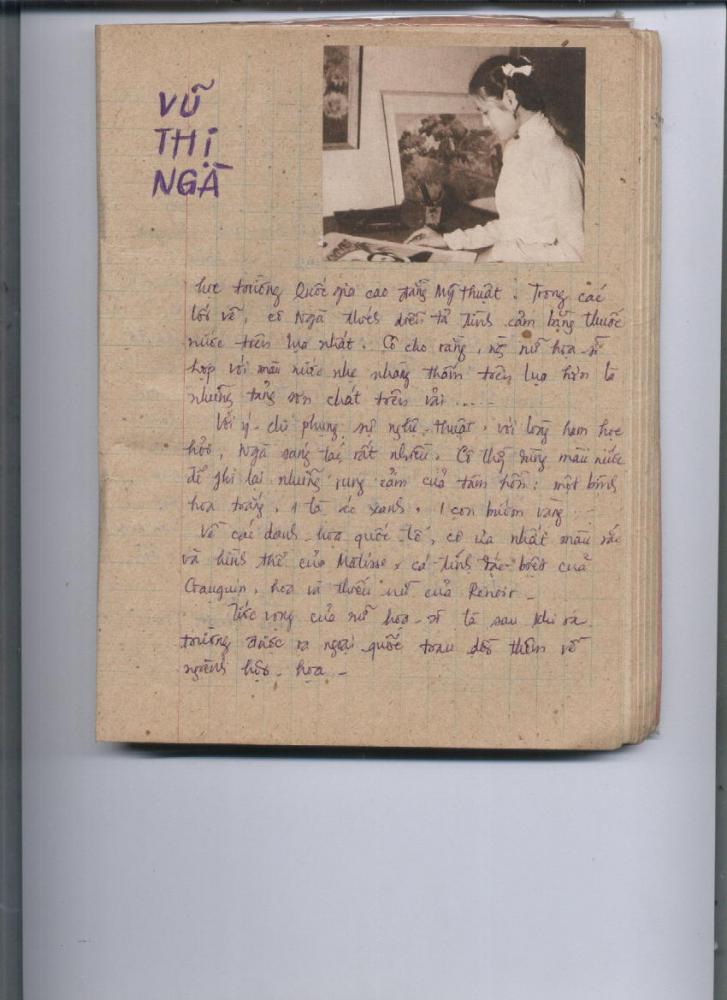 VŨ
THỊ
NGÀ
học trường Quốc gia cao đẳng Mỹ thuật. Trong các
lối vẽ, cô Ngà thích diễn tả tình cảm bằng thuốc
nước trên lụa nhất. Cô cho rằng, nữ họa-sĩ
hợp với mầu nước nhẹ nhàng thấm trên lụa hơn là
những tảng sơn chát trên vải ....-
Với ý-chí phụng sự nghệ-thuật, với lòng ham học
hỏi, Ngà sáng tác rất nhiều. Cô dùng mầu nước
để ghi lại những rung cảm của tâm hồn: một bông
hoa trắng, 1 lá xanh, 1 con bướm vàng ...
Về các danh-họa quốc tế, cô ưa nhất mầu sắc
và hình thể của Matisse, cá tính đặc-biệt của
Gauguin, hoa và thiếu nữ của Renoir -
Ước vọng của nữ họa-sĩ là sau khi ra
trường được ra ngoại quốc trau dồi thêm về
ngành hội-họa -